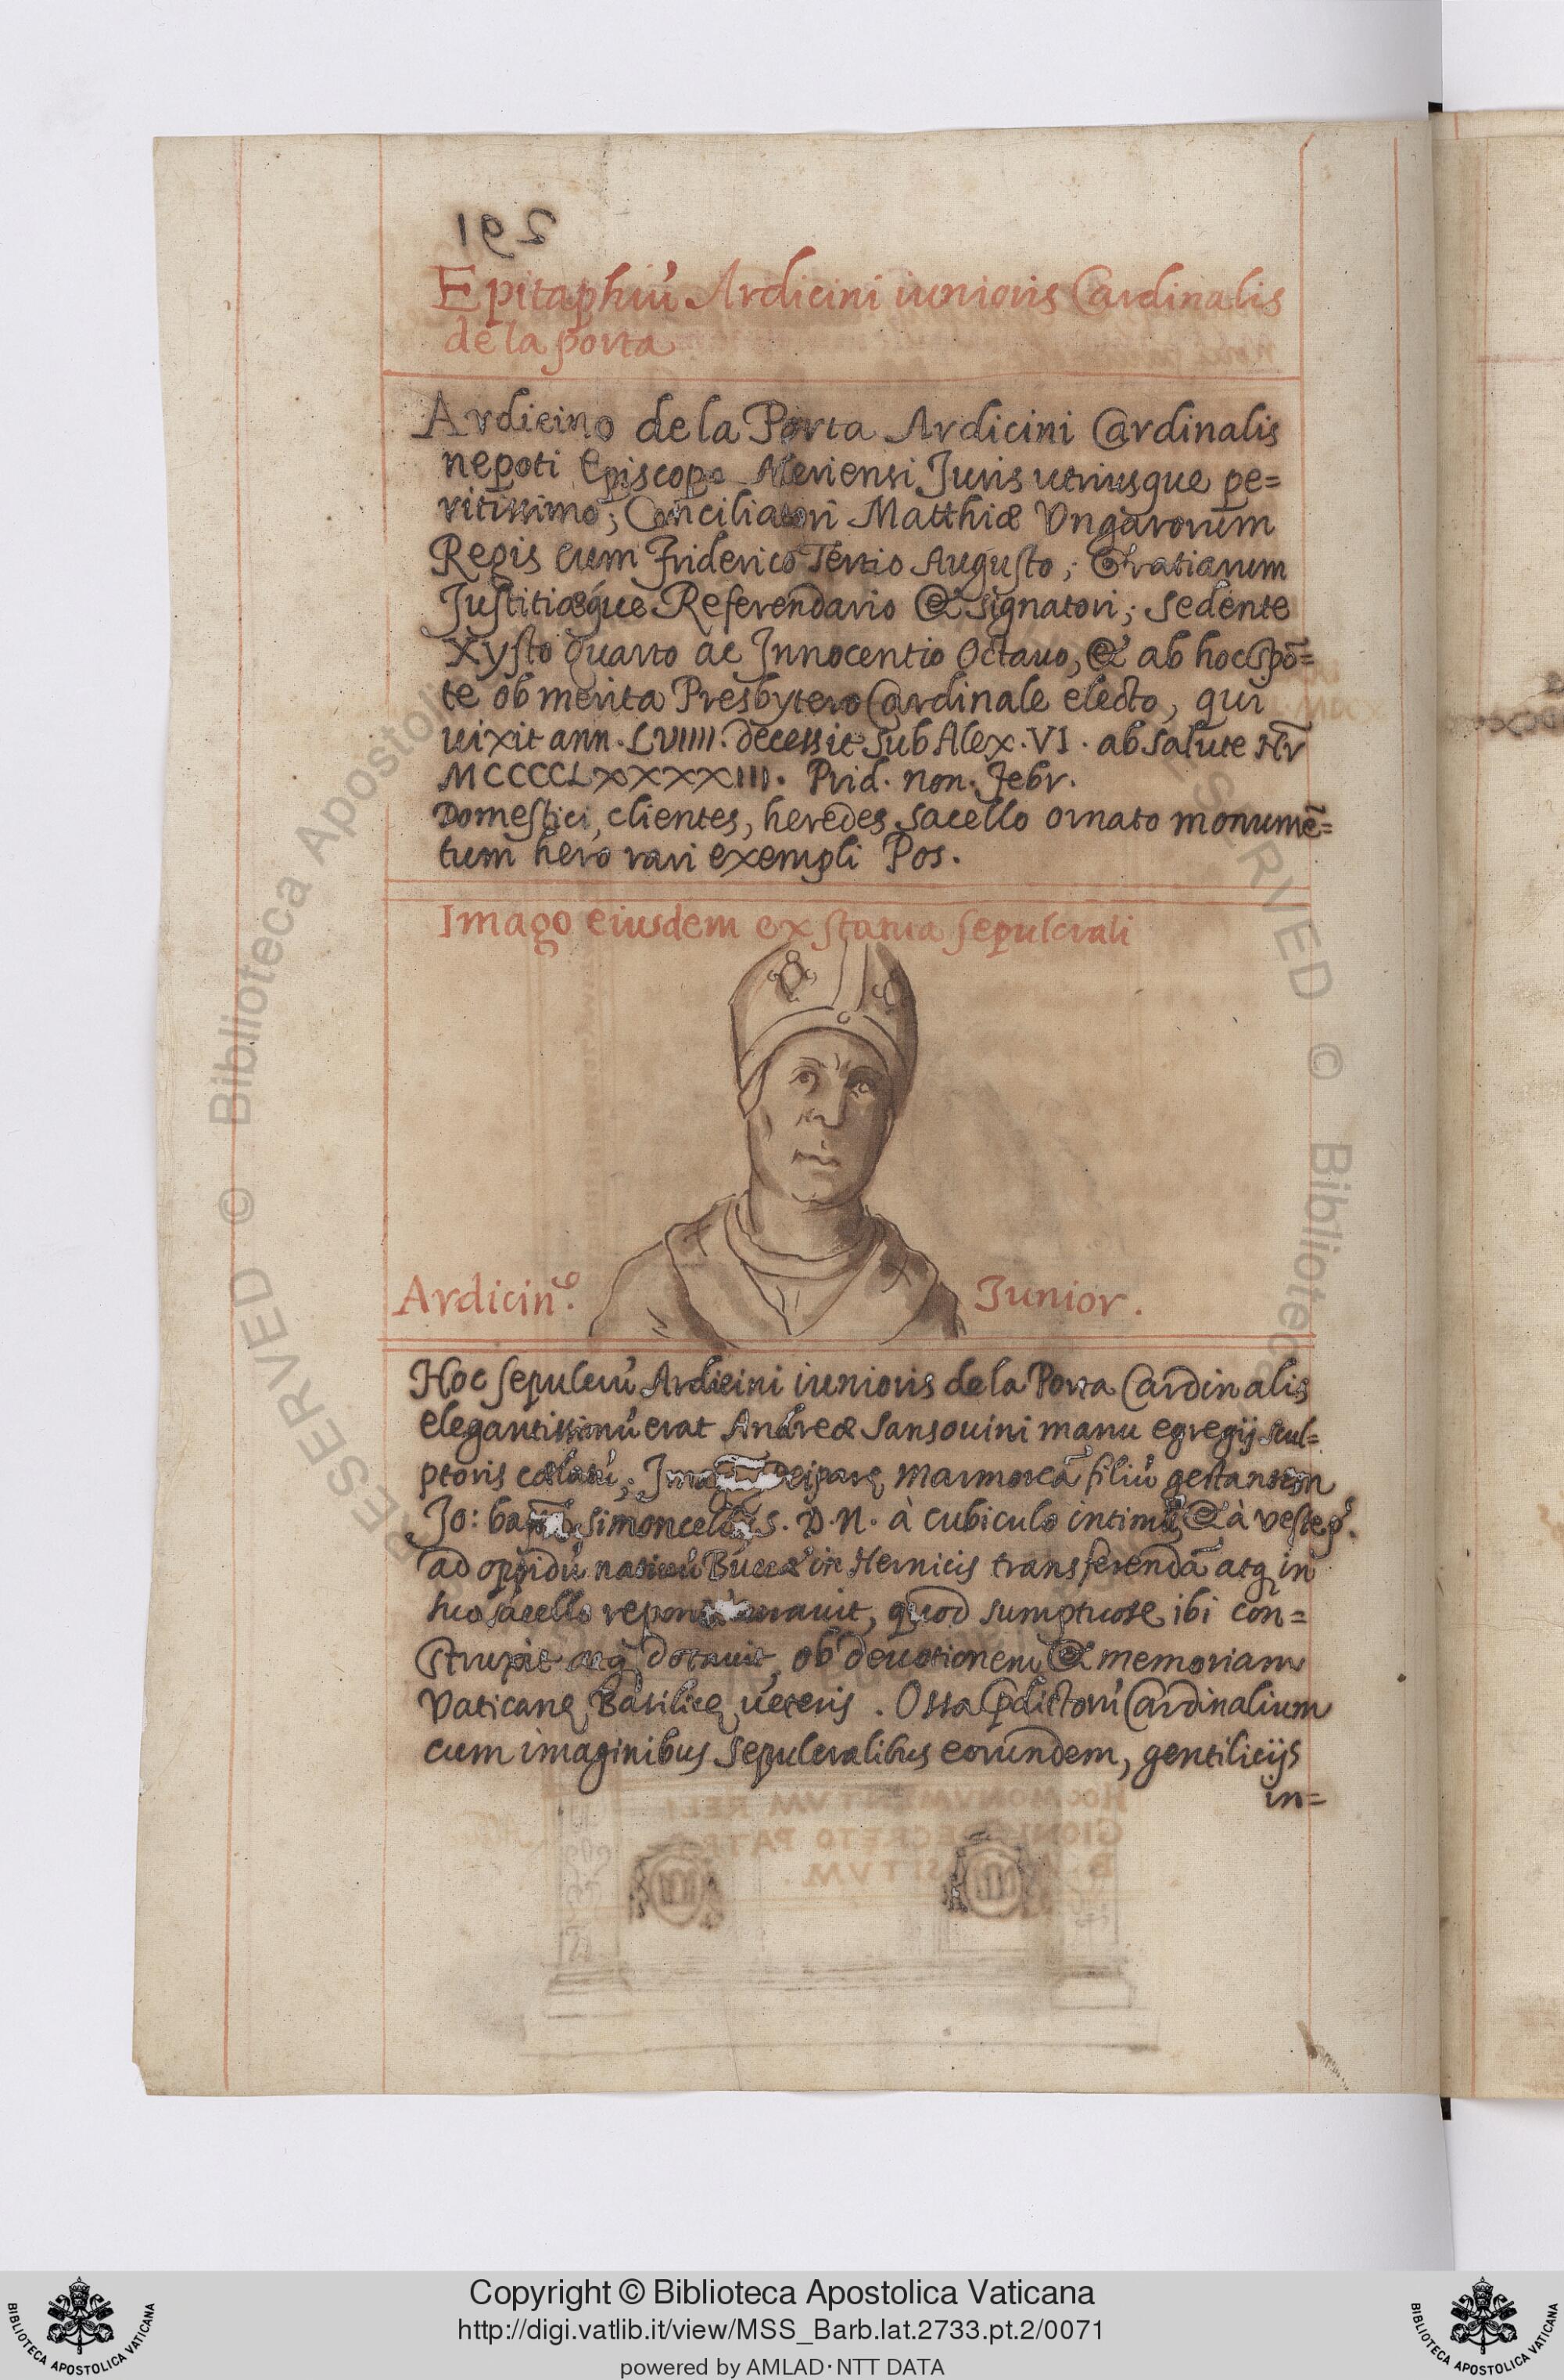 291
Epitaphiũ Ardicini iunioris Cardinalis
de la porta
Ardicino de la Porta Ardicini Cardinalis
nepoti Episcopo Aleriensi Juris utriusque pe=
ritissimo; Conciliatori Matthiæ Vngarorum
Regis cum Friderico Tertio Augusto; Gratiarum
Justitiæque Referendario & signatori; sedente
Xysto Quarto ac Innocentio Octauo, & ab hoc spõ=
te ob merita Presbytero Cardinale electo, qui
uixit ann. LVIIII. decessit sub Alex. VI. ab salute
MCCCCLXXXXIII. Prid. non. Febr.
Domestici, clientes, heredes sacello ornato monumẽ=
tum hero rari exempli Pos.
Imago eiusdem ex statua sepulcrali
Ardicin⁹.
Junior.
Hoc sepulcrũ Ardicini iunioris de la Porta Cardinalis
elegantissimũ erat Andreæ Sansouini manu egregij scul=
ptoris cælatũ; Deiparę marmoreã filiũ gestantem
Jo: simoncellus S. D. N. à cubiculo intimo & à
ad oppidũ natiuũ Baucæ in Hernicis transferendã atq in
suo sacello curauit, quod sumptuose ibi con=
struxit atq dotauit, ob deuotionem & memoriam
Vaticanę Basilicę ueteris. Ossa pdictorũ Cardinalium
cum imaginibus sepulcralibus eorundem, gentilicijs
in=
HOC MONVMENTVM RELI
Copyright © Biblioteca Apostolica Vaticana
http://digi.vatlib.it/view/MSS_Barb.lat.2733.pt.2/0071
powered by AMLAD·NTT DATA
BIBLIOTECA APOSTOLICA VATICANA
BIBLIOTECA APOSTOLICA VATICANA